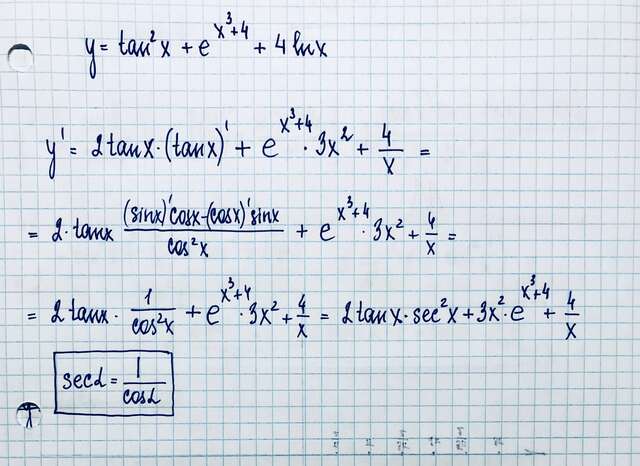 y = tan²x + e^(x³+4) + 4 ln x
y' = 2 tan x · (tan x)' + e^(x³+4) · 3x² + 4/x =
= 2 · tan x ((sin x)' cos x - (cos x)' sin x)/(cos²x) + e^(x³+4) · 3x² + 4/x =
= 2 tan x · 1/(cos²x) + e^(x³+4) · 3x² + 4/x = 2 tan x · sec²x + 3x² · e^(x³+4) + 4/x
sec α = 1/(cos α)